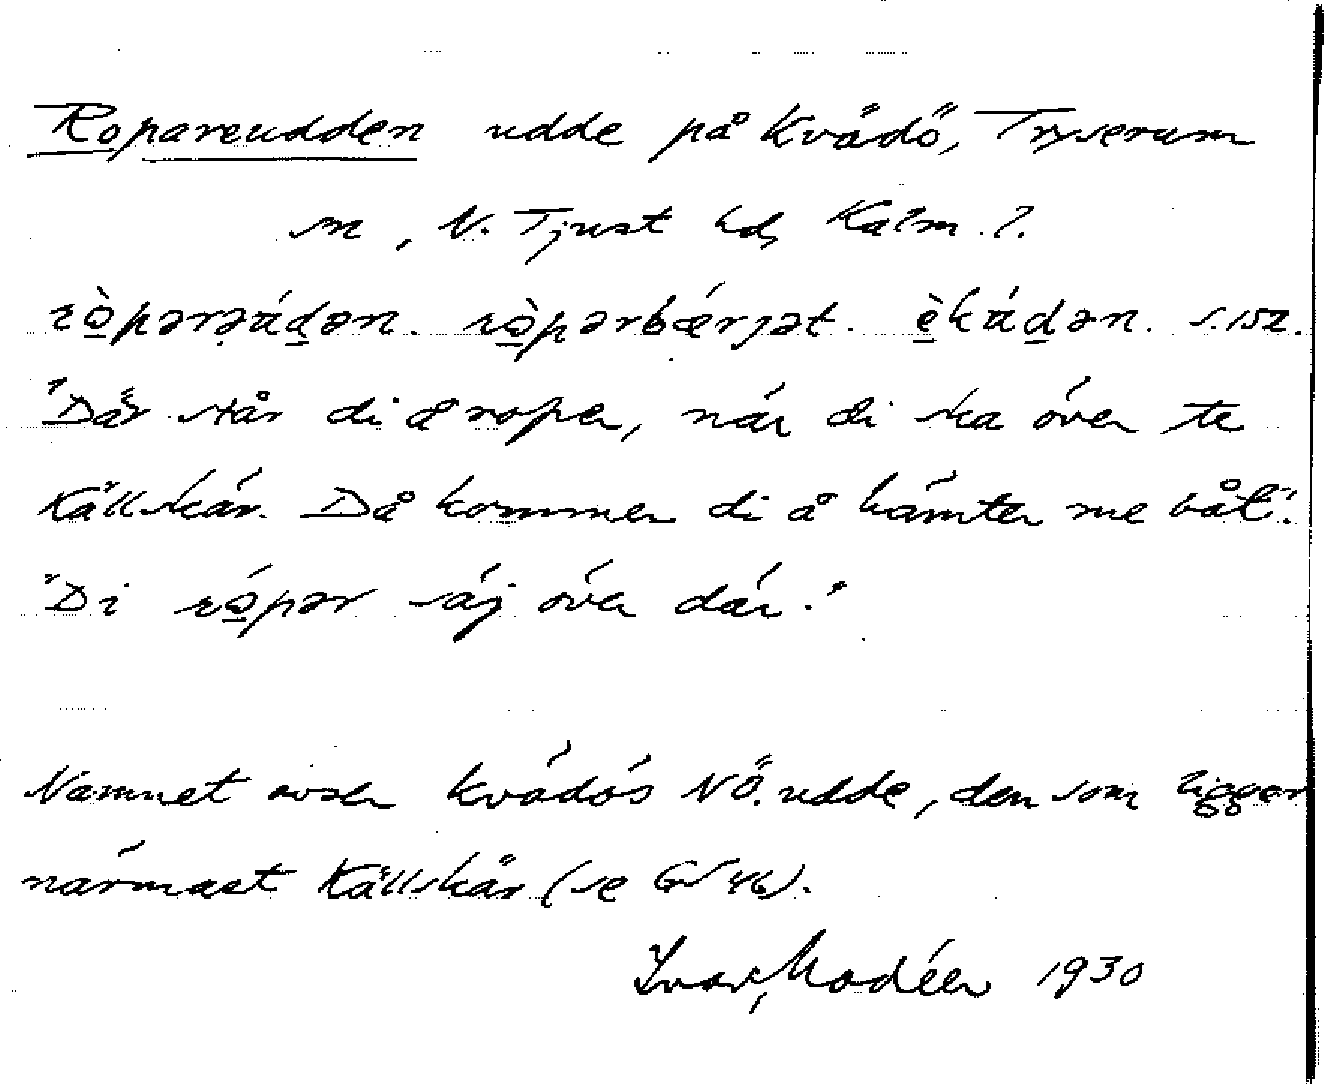 Ropareudden udde på Kvädö, Tryserum
sn, N. Tjust hd, Kalm. l.
ròpərəúdən. ròpərbærjət. èkúdən. s. 152.
"Där står di å roper, när di ska över te
Källskär. Då kommer di å hämter me båt."
"Di ròpər säj över där."
Namnet avser Kvädös NÖ. udde, den som ligger
närmast Källskär (se GS 46).
Ivar Modéer 1930